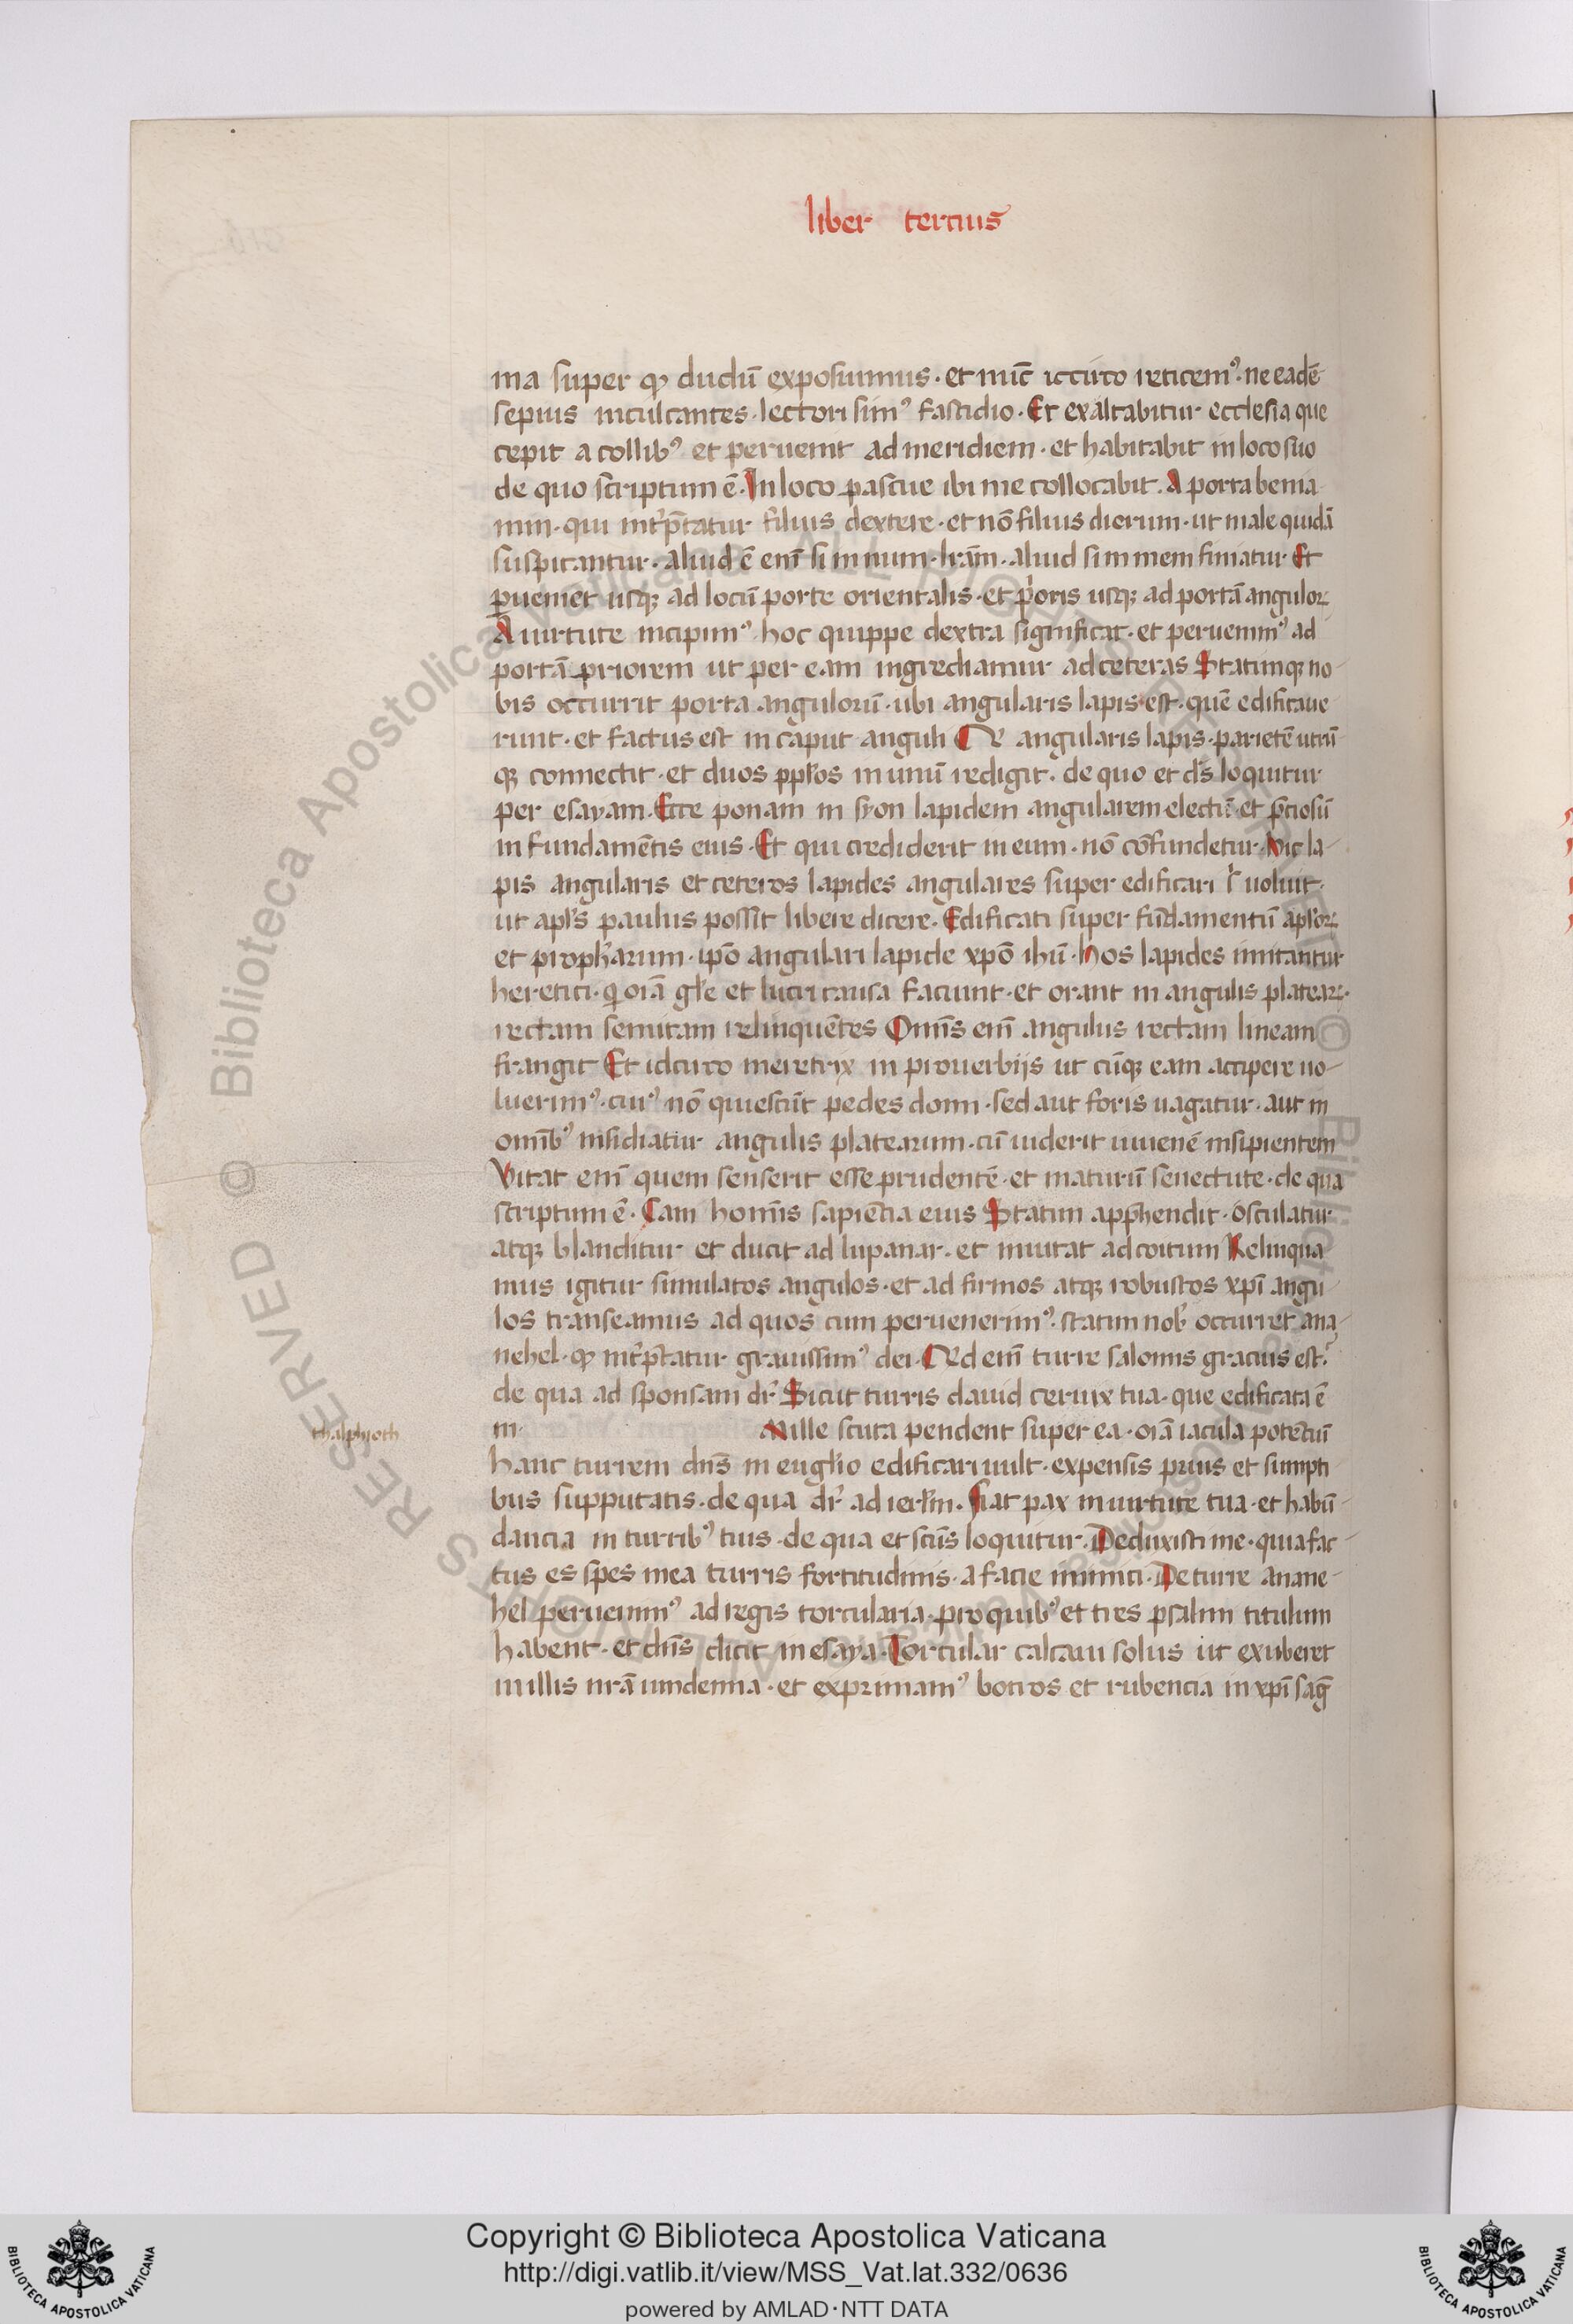 liber tercius
ma super qͦ dudū exposuimus · et nūc iccirco reticem᾽ · ne eadē
sepius inculcantes · lectori sim᾽ fastidio · Et exaltabitur ecclesia que
cepit a collib᾽ et peruenit ad meridiem · et habitabit in loco suo
de quo scriptum ē · In loco pascue ibi me collocabit · A porta benia
min · qui int̓p̄tatur filius dextere · et nō filius dierum · ut male quidā
suspicantur · aliud ē enī si in num · lr̄am · aliud si in mem finiatur · Et
ꝑueniet usqꝫ ad locū porte orientalis · et p̓oris usqꝫ ad portā anguloꝝ
A uirtute incipim᾽ · hoc quippe dextra significat · et peruenim᾽ ad
portā priorem ut per eam ingrediamur ad ceteras Statimqꝫ no-
bis occurrit porta angulorū · ubi angularis lapis est · quē edificaue
runt · et factus est in caput anguli Qr̄ angularis lapis · parietē utrū-
qꝫ connectit · et duos pp̄los in unū redigit · de quo et dn̄s loquitur
per esayam · Ecce ponam in syon lapidem angularem electū · et p̄ciosū
in fundamētis eius · Et qui crediderit in eum · nō cōfundetur · Hic la-
pis angularis et ceteros lapides angulares super edificari s̄ uoluit ·
ut apl̄s paulus possit libere dicere · Edificati super fūdamentū apl̄oꝝ
et proph̄arum · ip̄o angulari lapide xp̄o ih̄u · Hos lapides imitantur
heretici · qͥ oīa gl̄e et lucri causa faciunt · et orant in angulis plateaꝝ ·
rectam semitam relinquētes Om̄is enī angulus rectam lineam
frangit Et idcirco meretrix in prouerbijs ut cūqꝫ eam accipere uo-
luerim᾽ · cui᾽ nō quiescūt pedes domi · sed aut foris uagatur · aut in
omīb᾽ insidiatur angulis platearum · cū uiderit iuuenē insipientem
Vitat enī quem senserit esse prudentē · et maturū senectute · de qua
scriptum ē · Cani homīs sapiētia eius Statim app̄hendit · osculatur
atqꝫ blanditur et ducit ad lupanar · et inuitat ad coitum Relinqua
mus igitur simulatos angulos · et ad firmos atqꝫ robustos xp̄i angu-
los transeamus ad quos cum peruenerim᾽ · statim nob̓ occurret ana-
nehel · qͦ int̓p̄tatur grauissim᾽ dei · Qͥd enī turre salomis gracius est ·
de qua ad sponsam dr̄ Sicut turris dauid ceruix tua · que edificata ē
thalphyoth
in · Mille scuta pendent super ea · oīa iacula potētiū
hanc turrem dn̄s in euglīo edificari uult · expensis prius et sumpti
bus supputatis · de qua dr̄ ad ierl̄m · Fiat pax in uirtute tua · et habū-
dancia in turrib᾽ tuis · de qua et scūs loquitur · Deduxisti me · quia fac-
tus es spes mea turris fortitudinis · a facie inimici · De turre anane-
hel peruenim᾽ ad regis torcularia · pro quib᾽ et tres psalmi titulum
habent · et dn̄s dicit in esaya · Torcular calcaui solus ut exuberet
in illis nr̄a uindemia · et exprimam᾽ botros et rubencia in xp̄i sāḡ
Copyright © Biblioteca Apostolica Vaticana
http://digi.vatlib.it/view/MSS_Vat.lat.332/0636
powered by AMLAD·NTT DATA
BIBLIOTECA APOSTOLICA VATICANA
BIBLIOTECA APOSTOLICA VATICANA